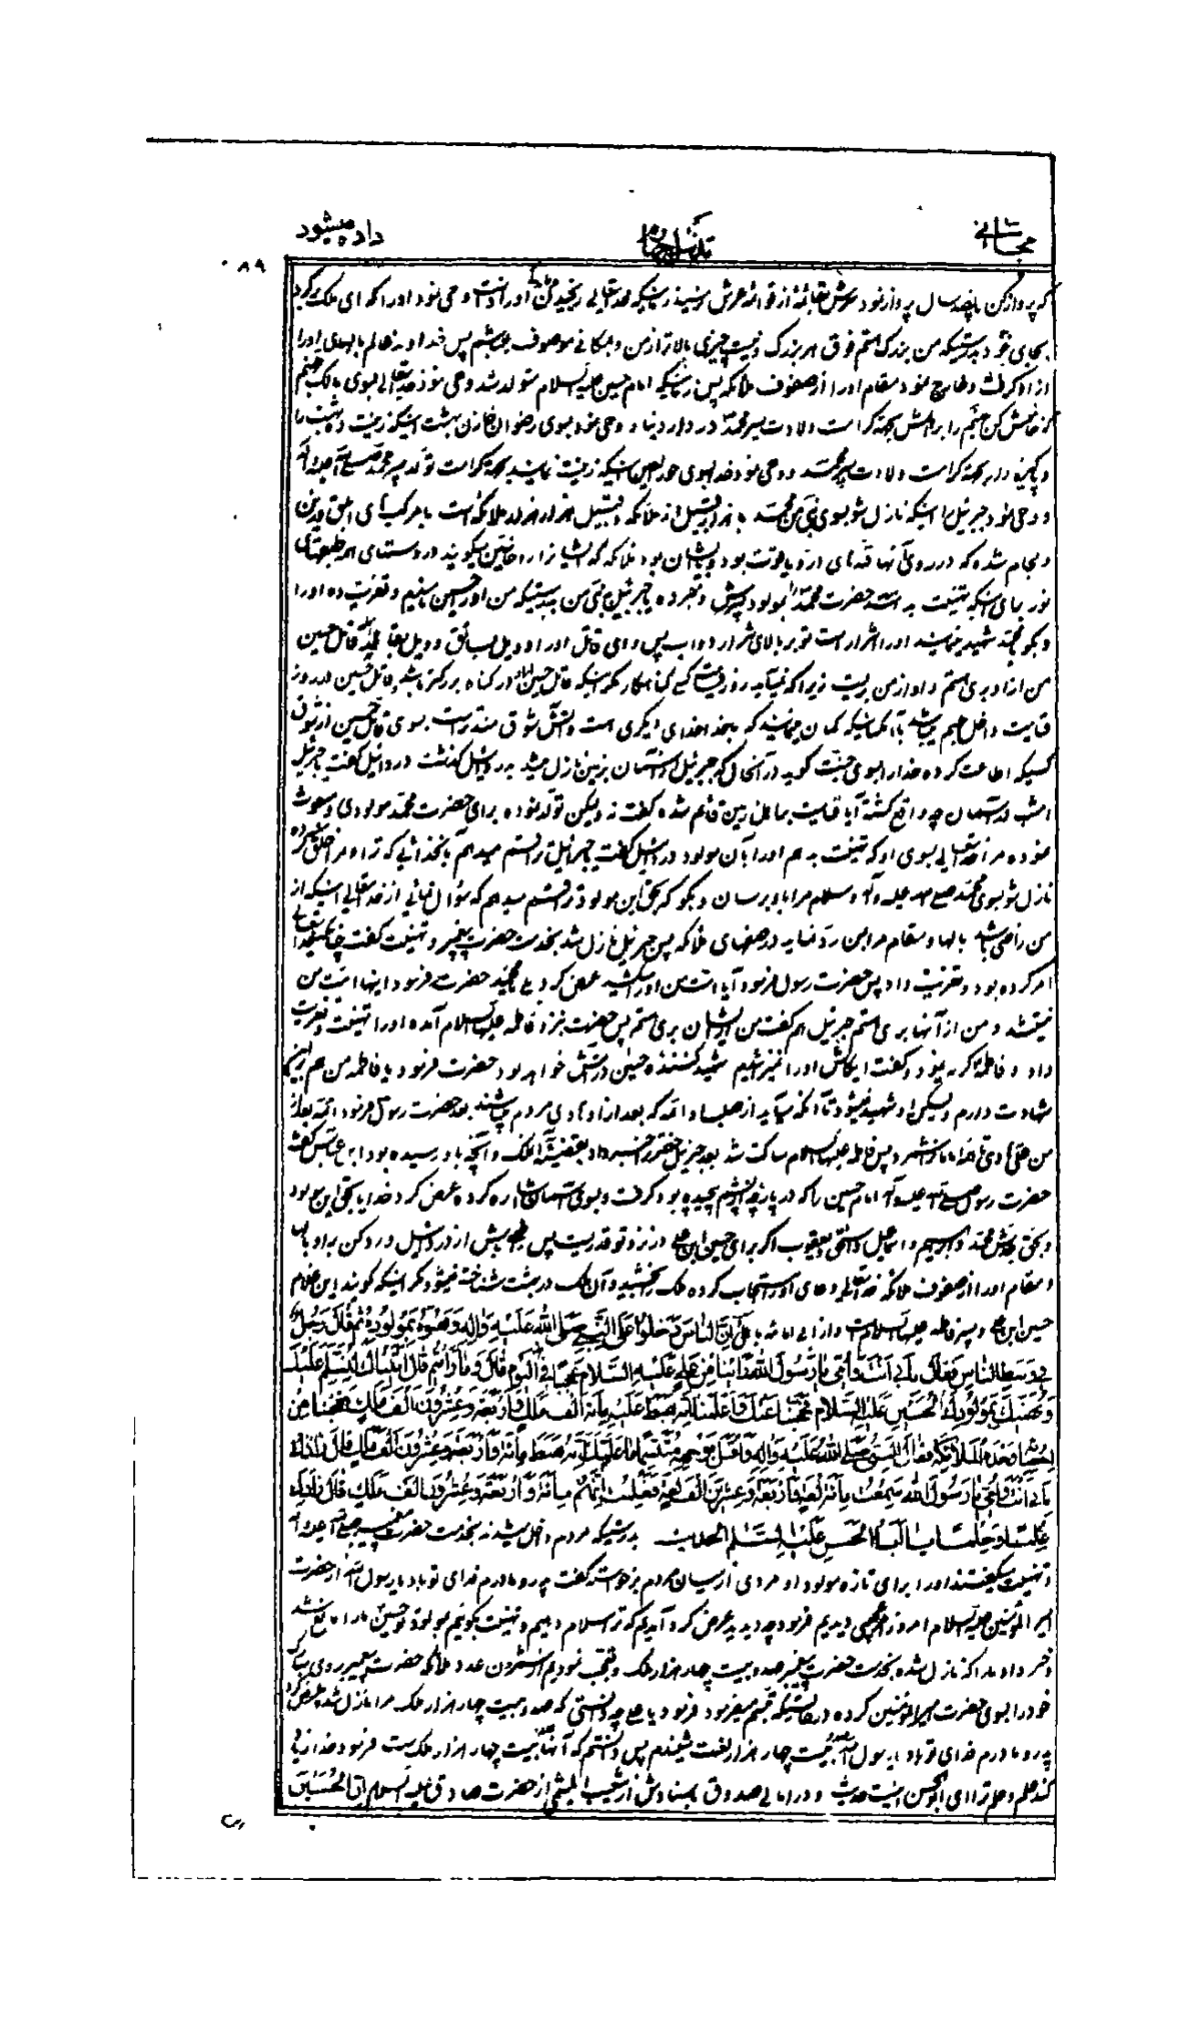 مجانی
داده میشود
۸۹
که پرواز کن پانصد سال پرواز نمود بعرش بقائمه از قوائم عرش نرسید زمانیکه خدایتعالی و حی نمود اورا که ای ملک برگرد
بجای خود بدرستیکه من بزرگ هستم فوق هر بزرگ و نیست چیزی بالاتر از من و بمکانی موصوف نمیباشم پس خداوند عالم بالهای اورا
از او گرفت و خارج نمود مقام اورا از صفوف ملائکه پس زمانیکه امام حسین علیه السلام متولد شد وحی نمود خدایتعالی بسوی مالک جهنم
که خاموش کن جهنم را بر اهلش بجهة کرامت ولادت پسر محمد در دار دنیا و وحی نمود بسوی رضوان خازن بهشت اینکه زینت ده بهشت را
و پاکیزه دار بجهة کرامت ولادت پسر محمد و وحی نمود خدا بسوی حور العین اینکه زینت نمایند بجهة کرامت تولد پسر محمد صلی الله علیه وآله
و وحی نمود جبرئیل را اینکه نازل شو بسوی نبی من محمد با هزار قبیل از ملائکه و قبیل هزار هزار ملائکه است با مرکبهای ابلق و زین
و لجام شده که در روی آنها قبه‌های از در و یاقوت بود و با ایشان بود ملائکه که ایشانرا روحانیین میگویند در دستهای آنها طبقهای
نور برای اینکه تهنیت بدهند حضرت محمد را بمولود پسرش و خبر ده یا جبرئیل نبی من بدرستیکه من اورا حسین نامیدیم و تعزیت ده اورا
و بگو یا محمد شهید مینمایند اورا اشرار امت تو بر بالای اشرار دواب پس وای قاتل اورا و ویل سائق و ویل بقائد قاتل حسین
من از او بری هستم و او از من بریست زیرا که نمیآید روز قیامت کسی گناهکار مگر اینکه قاتل حسین از او در گناه بزرگتر باشد قاتل حسین در روز
قیامت داخل جهنم میباشد با آنکسانیکه گمان مینمایند که با خدا خدای دیگری هست و آتش شوق مندتر است بسوی قاتل حسین از شوق
کسیکه اطاعت کرده خدا را بسوی جنت گوید در آنحال که جبرئیل از آسمان بزمین نازل میشد به دردائیل گذشت دردائیل گفت یا جبرئیل
امشب در آسمان چه واقع گشته آیا قیامت بر اهل زمین قائم شده گفت نه ولیکن تولد نموده برای حضرت محمد مولودی و مبعوث
نموده مرا خدایتعالی بسوی او که تهنیت بدهم اورا بآن مولود دردائیل گفت یا جبرئیل ترا قسم میدهم بآنخدائی که ترا و مرا خلق کرده
نازل شو بسوی محمد صلی الله علیه وآله وسلام مرا باو برسان و بگو که بحق این مولود ترا قسم میدهم که سؤال نمائی از خدایتعالی اینکه از
من راضی باشد بالها و مقام مرا بمن رد نماید در صفهای ملائکه پس جبرئیل نازل شد بخدمت حضرت پیغمبر و تهنیت گفت چنانکه خدا
امر کرده بود و تعزیت داد پس حضرت رسول فرمود آیا امت من اورا میکشند عرض کرد بلی یا محمد حضرت فرمود اینها امت من
نیستند و من از آنها بری هستم جبرئیل هم گفت من از ایشان بری هستم پس حضرت بنزد فاطمه علیها السلام آمده اورا تهنیت و تعزیت
داد و فاطمه گریه نمود و گفت ایکاش اورا نمیزائیدم شهید کننده حسین در آتش خواهد بود حضرت فرمود یا فاطمه من هم باین
شهادت دارم ولیکن او شهید نمیشود تا آنکه میآید از صلب او ائمه که بعد از او هادی مردم میباشند بعد حضرت رسول فرمود ائمه بعد از
من علی هادی تا آخر امامان را شمرد پس فاطمه علیها السلام ساکت شد بعد جبرئیل حضرت را خبر داد بقضیه آن ملک و آنچه باو رسیده بود ابن عباس گفت
حضرت رسول صلی الله علیه وآله امام حسین را که در پارچه پشم پیچیده بود گرفت و بسوی آسمان اشاره کرده عرض کرد خدایا بحق این مولود
و بحق جدش محمد و ابراهیم و اسماعیل و اسحق و یعقوب اگر برای حسین ابن علی در نزد تو قدریست پس ببخش از دردائیل و رد کن براو بالها
و مقام اورا از صفوف ملائکه خدایتعالی دعای اورا مستجاب کرده ملک را بخشید و آن ملک در بهشت شناخته نمیشود مگر اینکه گویند این غلام
حسین ابن علی و پسر فاطمه علیها السلام است و از ابی امامه باهلی اِنَّ النّاسَ دَخَلُوا عَلَی النَّبِیِّ صَلَّی اللهُ عَلَیْهِ وَآلِهِ وَهَنَّوْهُ بِمَوْلُودِهِ ثُمَّ قالَ رَجُلٌ
فِی وَسَطِ النّاسِ فَقالَ بِأَبِی أَنْتَ وَأُمِّی یا رَسُولَ اللهِ رَأَیْنا مِنْ عَلِیٍّ عَلَیْهِ السَّلامُ عَجَباً فِی الْیَوْمِ قالَ وَما رَأَیْتُمْ قالَ أَتَیْناكَ لِنُسَلِّمَ عَلَیْكَ
وَنُهَنِّیَكَ بِمَوْلُودِكَ الْحُسَیْنِ عَلَیْهِ السَّلامُ فَحَجَبَنا عَنْكَ وَأَعْلَمَنا أَنَّهُ هَبَطَ عَلَیْكَ مِائَةُ أَلْفِ مَلَكٍ وَأَرْبَعَةٌ وَعِشْرُونَ أَلْفَ مَلَكٍ فَعَجِبْنا مِنْ
إِحْصائِهِ وَعَدِّهِ الْمَلائِكَةَ فَقالَ النَّبِیُّ صَلَّی اللهُ عَلَیْهِ وَآلِهِ وَأَقْبَلَ بِوَجْهِهِ مُتَبَسِّماً ما عِلْمُكَ أَنَّهُ هَبَطَ مِائَةٌ وَأَرْبَعَةٌ وَعِشْرُونَ أَلْفَ مَلَكٍ قالَ
بِأَبِی أَنْتَ وَأُمِّی یا رَسُولَ اللهِ سَمِعْتُ مِائَةَ أَلْفِ لُغَةٍ وَأَرْبَعَةً وَعِشْرِینَ أَلْفَ لُغَةٍ فَعَلِمْتُ أَنَّهُمْ مِائَةٌ وَأَرْبَعَةٌ وَعِشْرُونَ أَلْفَ مَلَكٍ قالَ زادَكَ اللهُ
عِلْماً وَحِلْماً یا أَبَا الْحَسَنِ عَلَیْهِ السَّلامُ الحدیث بدرستیکه مردم داخل میشدند بخدمت حضرت پیغمبر صلی الله علیه وآله
و تهنیت میگفتند اورا برای تازه مولود او مردی از میان مردم برخواست گفت پدر و مادرم فدای تو باد یا رسول الله از حضرت
امیر المؤمنین علیه السلام امروز امر عجیبی دیدیم فرمود چه دیدید عرض کرد آمدیم که ترا سلام دهیم و تهنیت بگوئیم بمولود تو حسین مارا مانع شد
و خبر داد مارا که نازل شده بخدمت حضرت پیغمبر صد و بیست چهار هزار ملک و تعجب نمودیم از شمردن عدد ملائکه حضرت پیغمبر روی مبارک
خودرا بسوی حضرت امیر المؤمنین کرده درحالتیکه تبسم میفرمود فرمود یا علی چه دانستی که صد و بیست چهار هزار ملک مرا نازل شد عرض کرد
پدر و مادرم فدای تو باد یا رسول الله صد بیست چهار هزار لغت شنیدم پس دانستم که آنها صد بیست چهار هزار ملک است فرمود خدا زیاد
کند علم و حلم ترا ای ابو الحسن اینست حدیث و در امالی صدوق باسنادش از شعیب المیثمی از حضرت صادق علیه السلام اِنَّ الْحُسَیْنَ